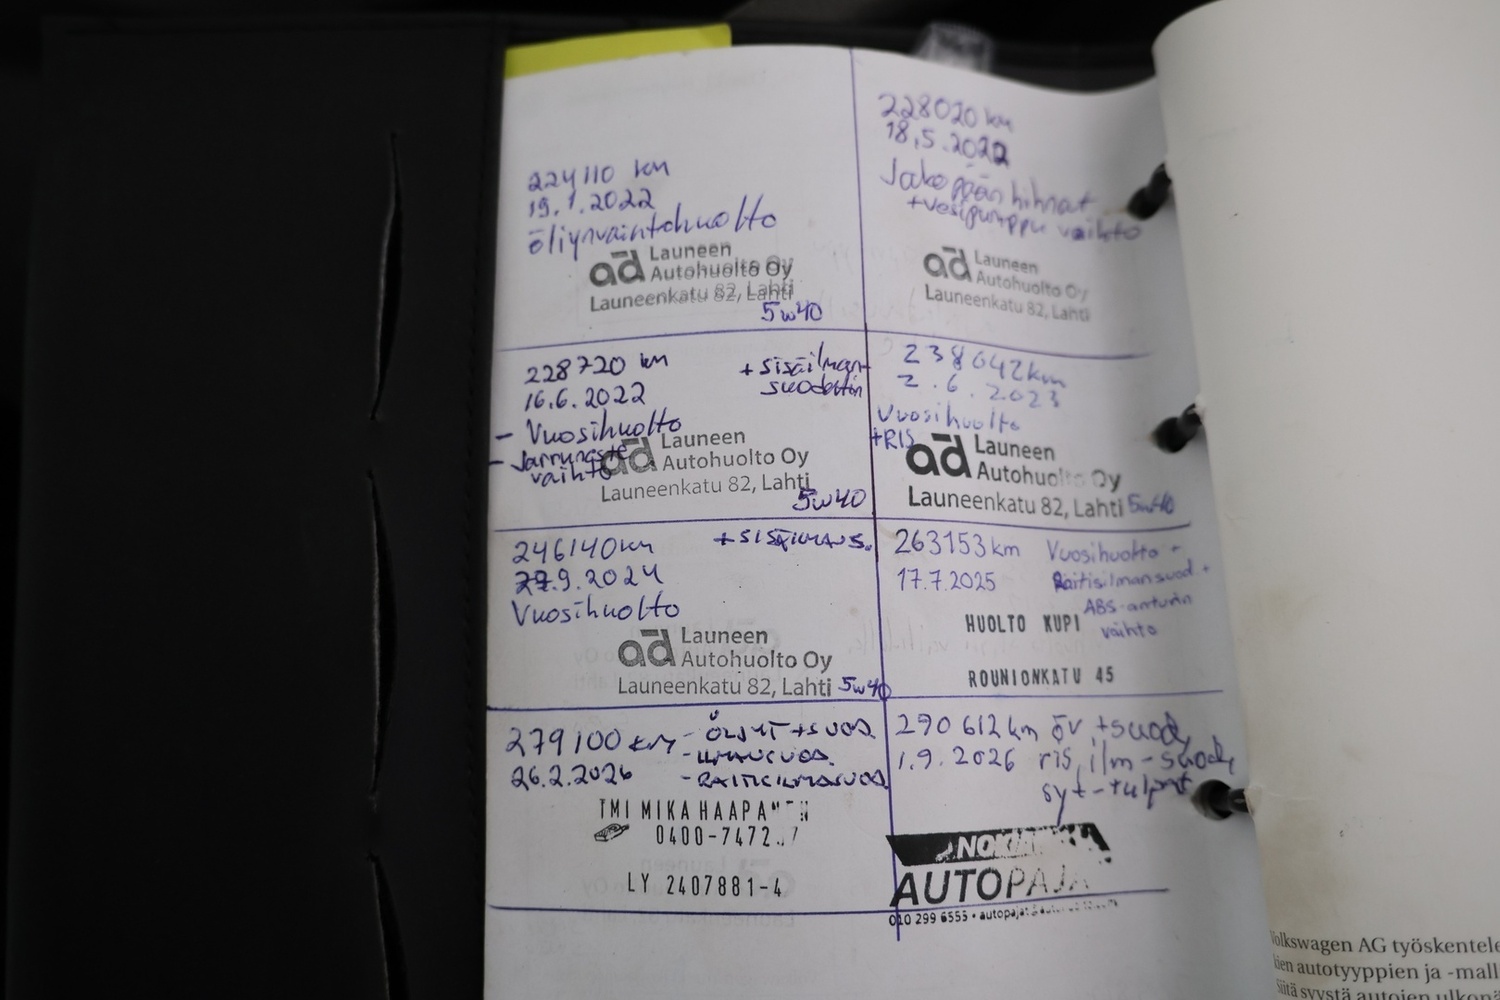 224110 km
19.1.2022
öliynvaihtohuolto
ad Launeen
Autohuolto Oy
Launeenkatu 82, Lahti
5w40
228020 km
18.5.2022
Jakopään hihnat
+vesipumppu vaihto
ad Launeen
Autohuolto Oy
Launeenkatu 82, Lahti
228720 km
16.6.2022
- Vuosihuolto
- Jarruneste
vaihto
+ sisäilman
suodatin
ad Launeen
Autohuolto Oy
Launeenkatu 82, Lahti
5w40
238642km
2.6.2023
Vuosihuolto
+RIS
ad Launeen
Autohuolto Oy
Launeenkatu 82, Lahti
5w40
246140km
.9.2024
Vuosihuolto
+SISÄILMANS.
ad Launeen
Autohuolto Oy
Launeenkatu 82, Lahti
5w40
263153km
17.7.2025
Vuosihuolto +
Raitisilmansuod +
ABS-anturin
vaihto
HUOLTO KUPI
ROUNIONKATU 45
279100 km
26.2.2026
- ÖLJYT+SUOD.
- ILMANSUOD.
- RAITISILMASUOD.
TMI MIKA HAAPA
0400-7472
LY 2407881-4
290 612km öv.+suod,
1.9.2026 ris, ilm-suod,
syt-tulpat
AUTOPAJA
010 299 6555 •
Volkswagen AG työskentele
kien autotyyppien ja -mall
Siitä syystä autojen ulkonä